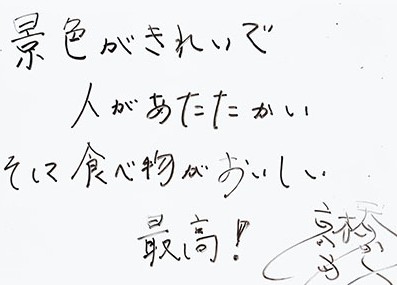 景色がきれいで
人があたたかい
そして食べ物がおいしい
最高!